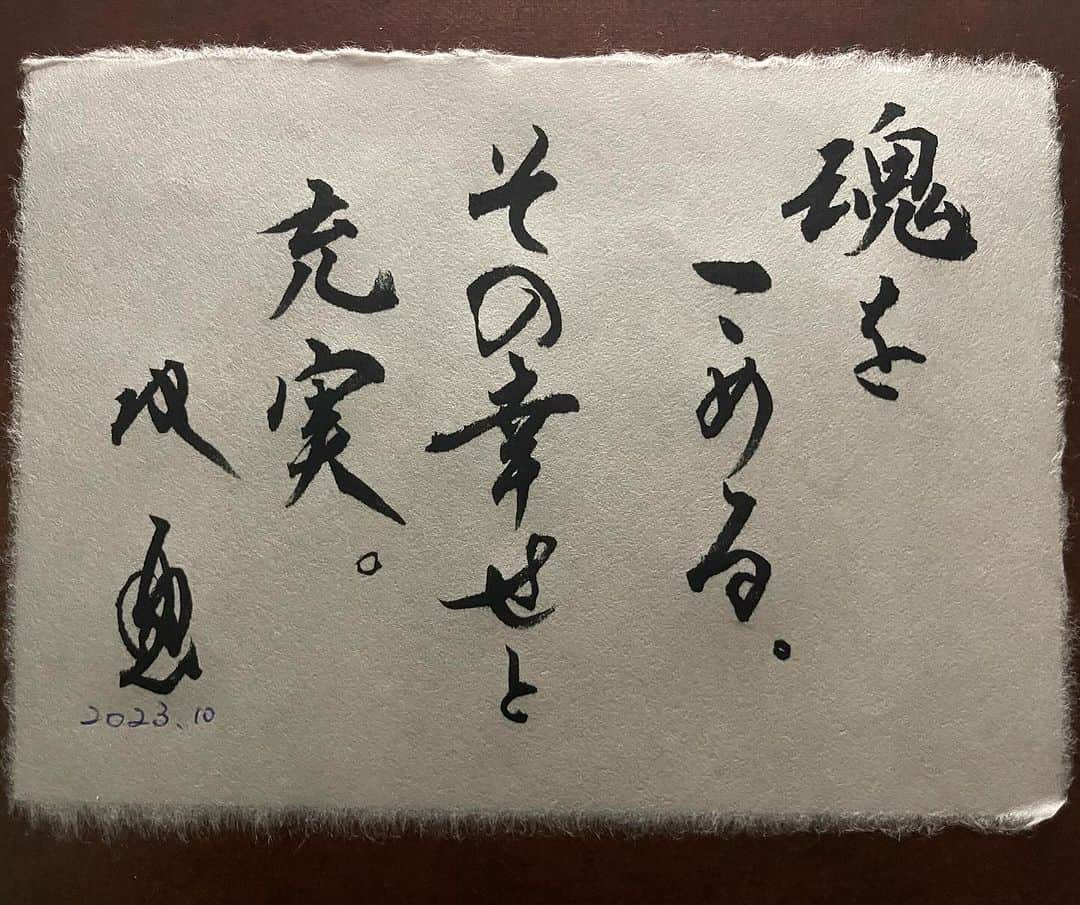 魂を
こめる。
その幸せと
充実。
2023.10